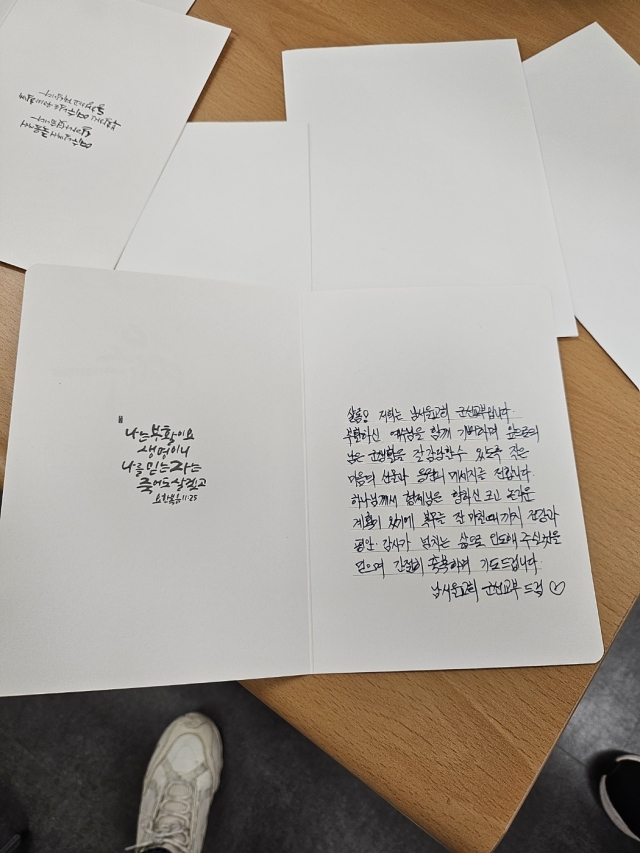 나는 부활이요
생명이니
나를 믿는 자는
죽어도 살겠고
요한복음 11:25
샬롬♡ 저희는 남서울교회 군선교부입니다.
부활하신 예수님을 함께 기뻐하며 앞으로의
남은 군생활을 잘 감당할 수 있도록 작은
마음의 선물과 응원의 메시지를 전합니다.
하나님께서 형제님을 향하신 크고 놀라운
계획이 있기에 복무를 잘 마칠때까지 건강과
평안 감사가 넘치는 삶으로 인도해 주실것을
믿으며 간절히 축복하며 기도드립니다.
남서울교회 군선교부 드림 ♡